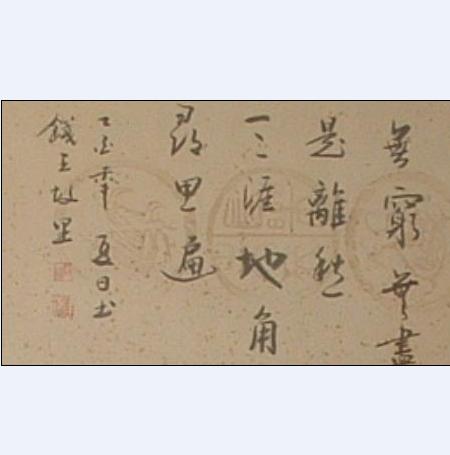 無窮無盡
是離愁
天涯地角
尋思遍
乙酉年夏日书
錢王故里